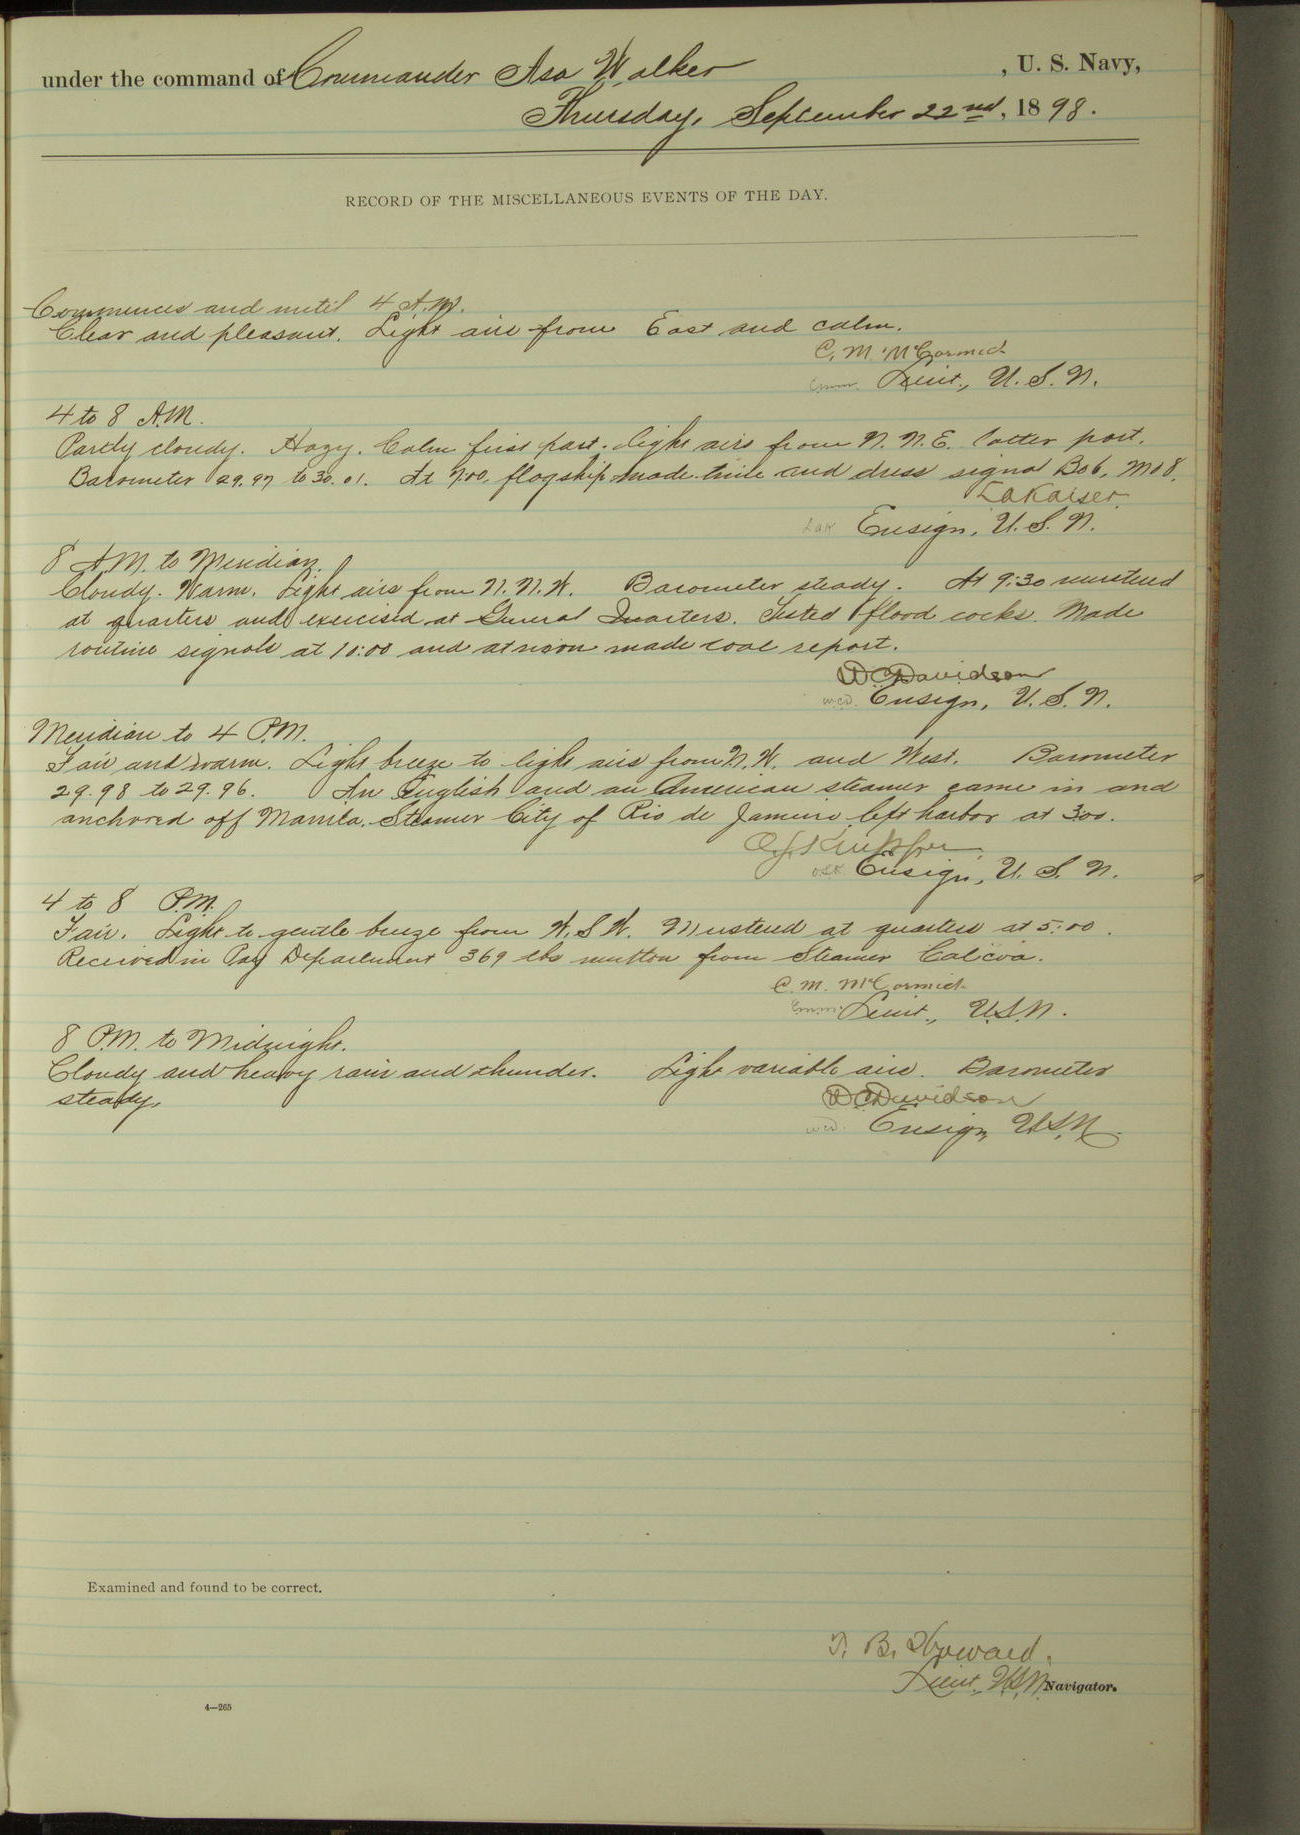 under the command of Commander Asa Walker, U. S. Navy,
Thursday, September 22nd, 1898.
RECORD OF THE MISCELLANEOUS EVENTS OF THE DAY.
Commences and until 4 A.M.
Clear and pleasant. Light airs from East and calm.
C. M. McCormick
Lieut., U. S. N.
4 to 8 A.M.
Partly cloudy. Hazy. Calm first part, light airs from N. N. E. latter part.
Barometer 29.97 to 30.01. At 7:00, flagship made time and dress signal B06, M08.
L A Kaiser
LAK Ensign, U. S. N.
8 A.M. to Meridian.
Cloudy. Warm. Light airs from N. N. W. Barometer steady. At 9:30 mustered
at quarters and exercised at General Quarters. Tested flood cocks. Made
routine signals at 10:00 and at noon made coal report.
W C Davidson
wcd. Ensign, U. S. N.
Meridian to 4 P.M.
Fair and warm. Light breeze to light airs from N. W. and West. Barometer
29.98 to 29.96. An English and an American steamer came in and
anchored off Manila. Steamer City of Rio de Janeiro left harbor at 3:00.
Ensign, U. S. N.
4 to 8 P.M.
Fair. Light to gentle breeze from W. S W. Mustered at quarters at 5:00.
Received in Pay Department 369 lbs mutton from Steamer
C. M. McCormick
Lieut., U.S.N.
8 P.M. to Midnight.
Cloudy and heavy rain and thunder. Light variable airs. Barometer
steady.
W C Davidson
wcd. Ensign, U.S.N.
Examined and found to be correct.
T. B. Howard,
Lieut., U.S.N. Navigator.
4—265